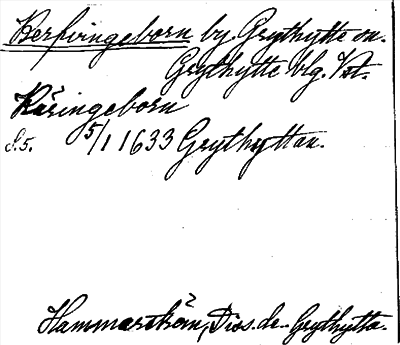 Berfvingeborn by, Grythytte sn.
Grythytte blg. Vst.
Käringeborn
S.5. 5/1 1633 Grythyttan.
Hammarström, Diss. de Grythytta.